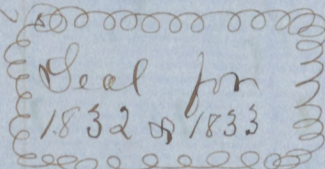 Deal for
1832 & 1833